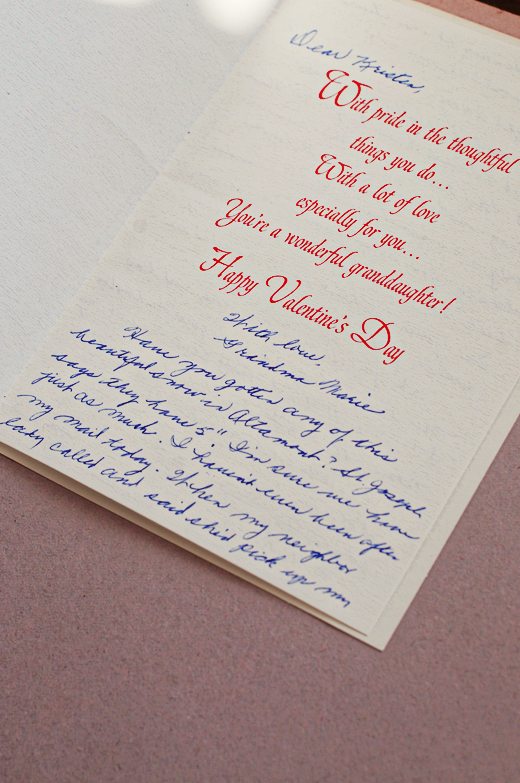 Dear Kristen,
With pride in the thoughtful
things you do...
With a lot of love
especially for you...
You're a wonderful granddaughter!
Happy Valentine's Day
With love,
Grandma Marie
Have you gotten any of this
beautiful snow in Altamont? St Joseph
says they have 5" I'm sure we have
just as much. I havent even been after
my mail today. When my neighbor
lady called and said she'd pick up my